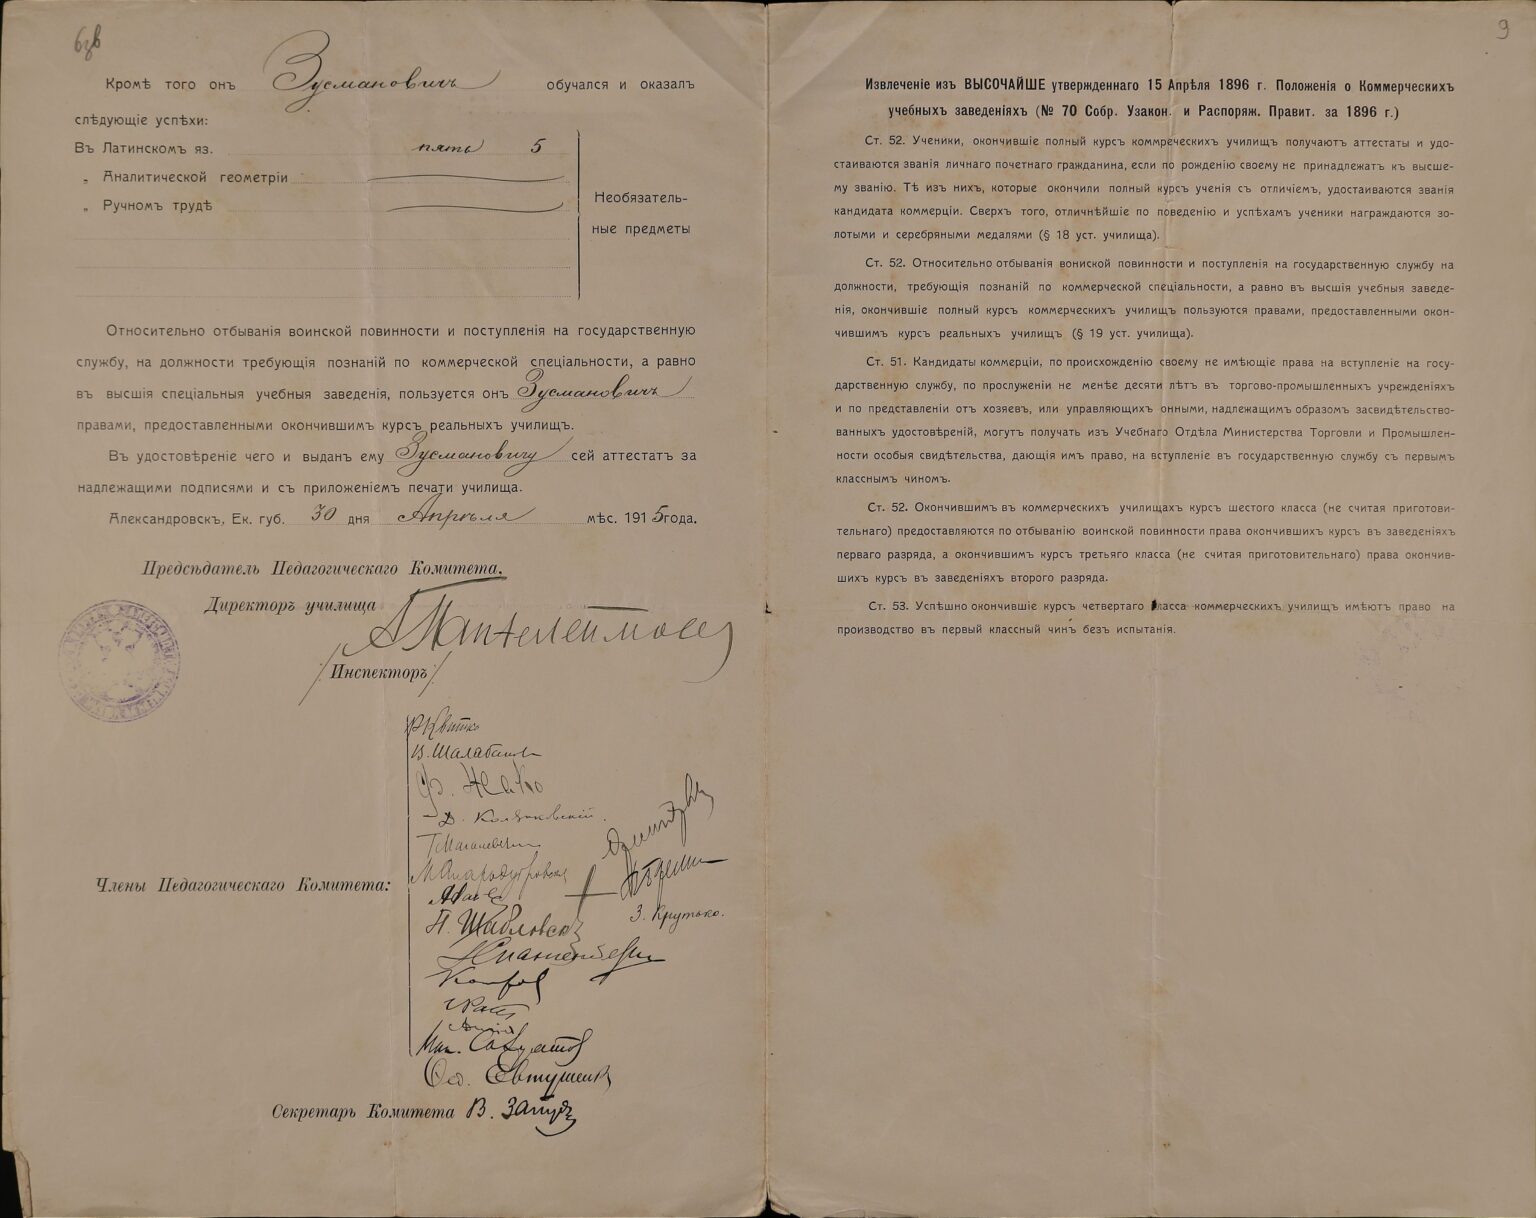 Кромѣ того онъ Зусмановичъ обучался и оказалъ
слѣдующіе успѣхи:
Въ Латинскомъ яз. пять 5
„ Аналитической геометріи
„ Ручномъ трудѣ
Необязатель-
ные предметы
Относительно отбыванія воинской повинности и поступленія на государственную
службу, на должности требующія познаній по коммерческой спеціальности, а равно
въ высшія спеціальныя учебныя заведенія, пользуется онъ Зусмановичъ
правами, предоставленными окончившимъ курсъ реальныхъ училищъ.
Въ удостовѣреніе чего и выданъ ему Зусмановичу сей аттестатъ за
надлежащими подписями и съ приложеніемъ печати училища.
Александровскъ, Ек. губ. 30 дня Апрѣля мѣс. 1915 года.
Предсѣдатель Педагогическаго Комитета.
Директоръ училища
Инспекторъ
Члены Педагогическаго Комитета:
З. Крутько.
Секретарь Комитета В.
9
Извлеченіе изъ ВЫСОЧАЙШЕ утвержденнаго 15 Апрѣля 1896 г. Положенія о Коммерческихъ
учебныхъ заведеніяхъ (№ 70 Собр. Узакон. и Распоряж. Правит. за 1896 г.)
Ст. 52. Ученики, окончившіе полный курсъ коммреческихъ училищъ получаютъ аттестаты и удо-
стаиваются званія личнаго почетнаго гражданина, если по рожденію своему не принадлежатъ къ высше-
му званію. Тѣ изъ нихъ, которые окончили полный курсъ ученія съ отличіемъ, удостаиваются званія
кандидата коммерціи. Сверхъ того, отличнѣйшіе по поведенію и успѣхамъ ученики награждаются зо-
лотыми и серебряными медалями (§ 18 уст. училища).
Ст. 52. Относительно отбыванія вониской повинности и поступленія на государственную службу на
должности, требующія познаній по коммерческой спеціальности, а равно въ высшія учебныя заведе-
нія, окончившіе полный курсъ коммерческихъ училищъ пользуются правами, предоставленными окон-
чившимъ курсъ реальныхъ училищъ (§ 19 уст. училища).
Ст. 51. Кандидаты коммерціи, по происхожденію своему не имѣющіе права на вступленіе на госу-
дарственную службу, по прослуженіи не менѣе десяти лѣтъ въ торгово-промышленныхъ учрежденіяхъ
и по представленіи отъ хозяевъ, или управляющихъ онными, надлежащимъ образомъ засвидѣтельство-
ванныхъ удостовѣреній, могутъ получать изъ Учебнаго Отдѣла Министерства Торговли и Промышлен-
ности особыя свидѣтельства, дающія имъ право, на вступленіе въ государственную службу съ первымъ
класснымъ чиномъ.
Ст. 52. Окончившимъ въ коммерческихъ училищахъ курсъ шестого класса (не считая приготови-
тельнаго) предоставляются по отбыванію воинской повинности права окончившихъ курсъ въ заведеніяхъ
перваго разряда, а окончившимъ курсъ третьяго класса (не считая приготовительнаго) права окончив-
шихъ курсъ въ заведеніяхъ второго разряда.
Ст. 53. Успѣшно окончившіе курсъ четвертаго класса коммерческихъ училищъ имѣютъ право на
производство въ первый классный чинъ безъ испытанія.